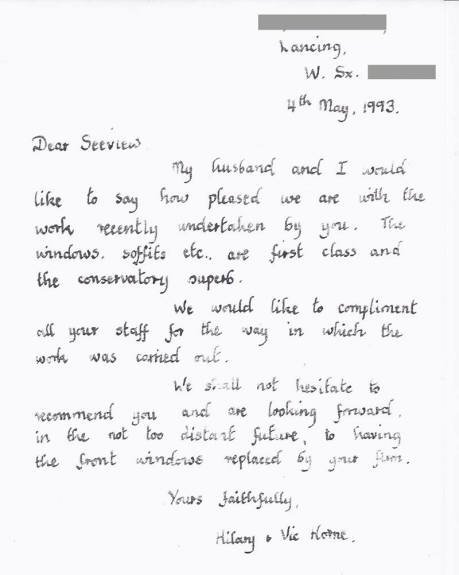 Lancing,
W. Sx.
4th May, 1993.
Dear Seeview
My husband and I would
like to say how pleased we are with the
work recently undertaken by you. The
windows, soffits etc., are first class and
the conservatory superb.
We would like to compliment
all your staff for the way in which the
work was carried out.
We shall not hesitate to
recommend you and are looking forward,
in the not too distant future, to having
the front windows replaced by your firm.
Yours faithfully,
Hilary & Vic Horne.